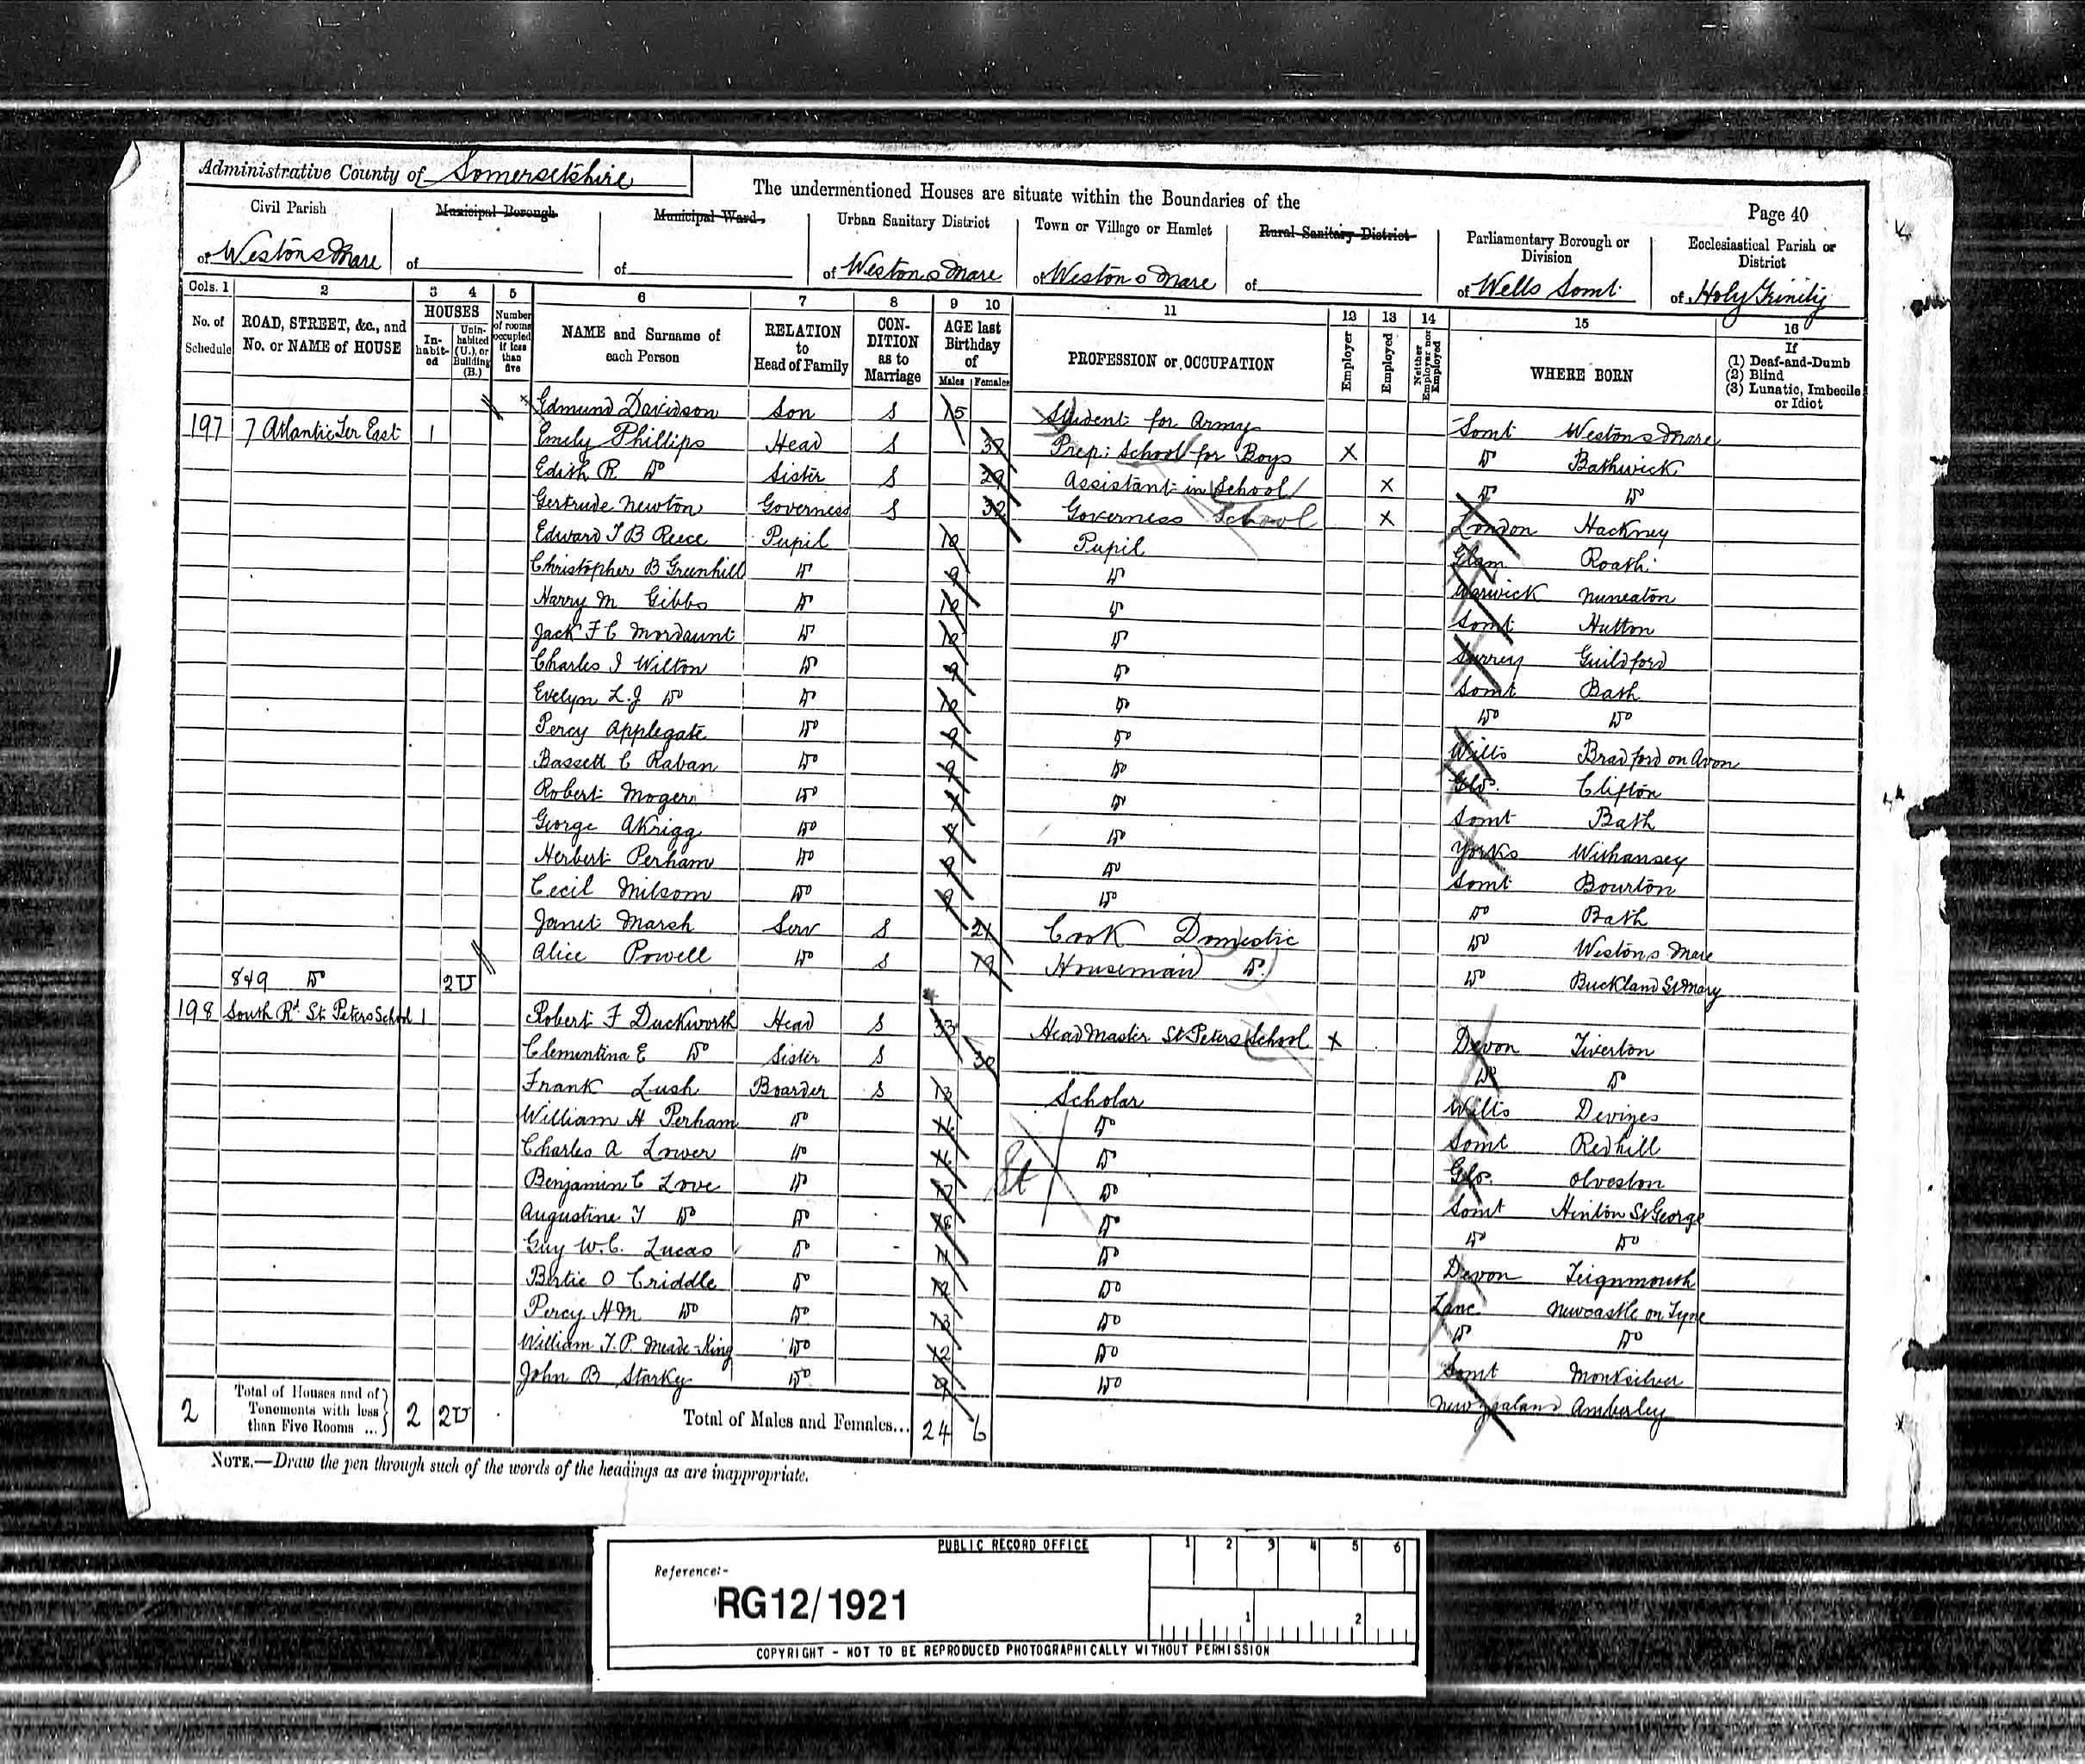 Administrative County of Somersetshire
The undermentioned Houses are situate within the Boundaries of the
Page 40
Civil Parish of Weston S Mare
Municipal Borough of
Municipal Ward of
Urban Sanitary District of Weston S Mare
Town or Village or Hamlet of Weston S Mare
Rural Sanitary District of
Parliamentary Borough or Division of Wells Somt
Ecclesiastical Parish or District of Holy Trinity
Cols. 1 2 3 4 5 6 7 8 9 10 11 12 13 14 15 16
No. of Schedule
ROAD, STREET, &c., and No. or NAME of HOUSE
HOUSES
In-habit-ed
Unin-habited (U.), or Building (B.)
Number of rooms occupied if less than five
NAME and Surname of each Person
RELATION to Head of Family
CON-DITION as to Marriage
AGE last Birthday of
Males Females
PROFESSION or OCCUPATION
Employer
Employed
Neither Employer nor Employed
WHERE BORN
If (1) Deaf-and-Dumb (2) Blind (3) Lunatic, Imbecile or Idiot
Edmund Davidson Son S 15 Student for Army Somt Weston S Mare
197 7 Atlantic Ter East 1 Emily Phillips Head S Prep: School for Boys X Do Bathwick
Edith R Do Sister S 29 Assistant in School X Do Do
Gertrude Newton Governess S 32 Governess School X London Hackney
Edward T B Reece Pupil 10 Pupil Glam Roath
Christopher B Greenhill Do 9 Do Warwick Nuneaton
Harry M Gibbs Do 10 Do Somt Hutton
Jack F C Mordaunt Do 10 Do Surrey Guildford
Charles I Wilton Do 9 Do Somt Bath
Evelyn L.J Do Do 10 Do Do Do
Percy Applegate Do 9 Do Wilts Bradford on Avon
Bassett C Raban Do 9 Do Glos. Clifton
Robert Moger Do Do Somt Bath
George Akrigg Do Do Yorks
Herbert Perham Do 9 Do Somt Bourton
Cecil Milsom Do 9 Do Do Bath
Janet Marsh Serv S 21 Cook Domestic Do Weston S Mare
Alice Powell Do S 19 Housemaid Do. Do Buckland St Mary
8 & 9 Do 2U
198 South Rd. St. Peters School 1 Robert F Duckworth Head S 33 Head Master St Peters School X Devon Tiverton
Clementina E Do Sister S 30 Do Do
Frank Lush Boarder S 13 Scholar Wilts Devizes
William H Perham Do 11 Do Somt Redhill
Charles A Lower Do 11 Do Glos. Olveston
Benjamin C Love Do Do Somt Hinton St George
St
Augustine T Do Do Do Do Do
Guy W.C. Lucas Do 11 Do Devon Teignmouth
Bertie O Criddle Do 12 Do Lanc Newcastle on Tyne
Percy H M Do Do 13 Do Do Do
William T. P. Meade-King Do 12 Do Somt Monksilver
John B Starky Do 9 Do New Zealand Amberley
2 Total of Houses and of Tenements with less than Five Rooms ... 2 2U
Total of Males and Females... 24 6
NOTE.—Draw the pen through such of the words of the headings as are inappropriate.
PUBLIC RECORD OFFICE
1 2 3 4 5 6
Reference:-
RG12/1921
1 2
COPYRIGHT - NOT TO BE REPRODUCED PHOTOGRAPHICALLY WITHOUT PERMISSION